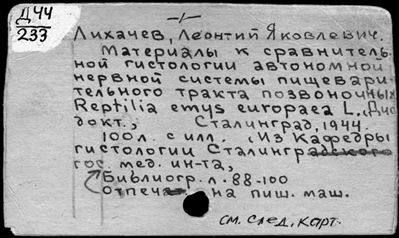 Д44
233
-/-
Лихачев, Леонтий Яковлевич.
Материалы к сравнитель-
ной гистологии автономной
нервной системы пищевари-
тельного тракта позвоночных
Reptilia emys europaea L.,
докт., Сталинград, 1944.
100 л. с илл., (Из Кафедры
гистологии Сталинградского
гос. мед. ин-та,
Библиогр. л. 88-100
Отпеча на пиш. маш.
см. след. карт.